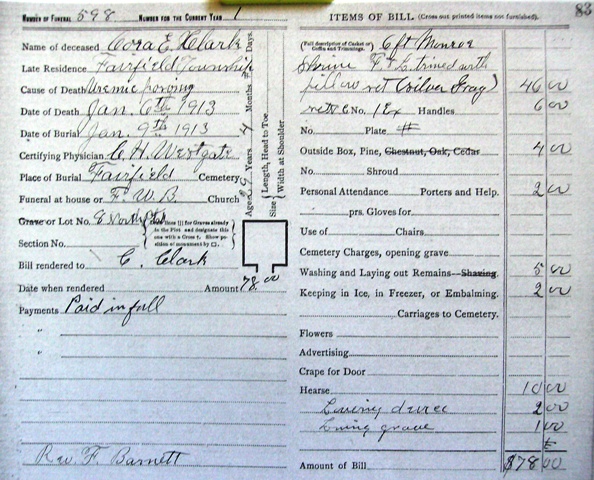 NUMBER OF FUNERAL 598 NUMBER FOR THE CURRENT YEAR 1
Name of deceased Cora E. Clark
Late Residence Fairfield Township
Cause of Death Uremic
Date of Death Jan. 6th 1913
Date of Burial Jan. 9th 1913
Certifying Physician C. H. Westgate
Place of Burial Fairfield Cemetery
Funeral at house or F. W. B. Church
Grave or Lot No. 8 North
(Use lines [ ] for Graves already in the Plot and designate this one with a Cross †. Show position of monument by □.)
Section No.
Bill rendered to C. Clark
Date when rendered Amount 78.00
Payments Paid in full
"
"
Rev F. Barnett
Aged 29 Years 4 Months Days.
Size Length, Head to Toe
Width at Shoulder
ITEMS OF BILL (Cross out printed items not furnished). 83
(Full description of Casket or Coffin and Trimmings. 6 ft Monroe
trimed with
pillow set (Silver Gray) 46 00
No. 1 Ex Handles 6 00
No. Plate #
Outside Box, Pine, Chestnut, Oak, Cedar 4 00
No. Shroud
Personal Attendance Porters and Help. 2 00
prs. Gloves for
Use of Chairs
Cemetery Charges, opening grave
Washing and Laying out Remains—Shaving 5 00
Keeping in Ice, in Freezer, or Embalming. 2 00
Carriages to Cemetery.
Flowers
Advertising
Crape for Door
Hearse 10 00
Lowering device 2 00
Lining grave 1 00
Amount of Bill $78 00